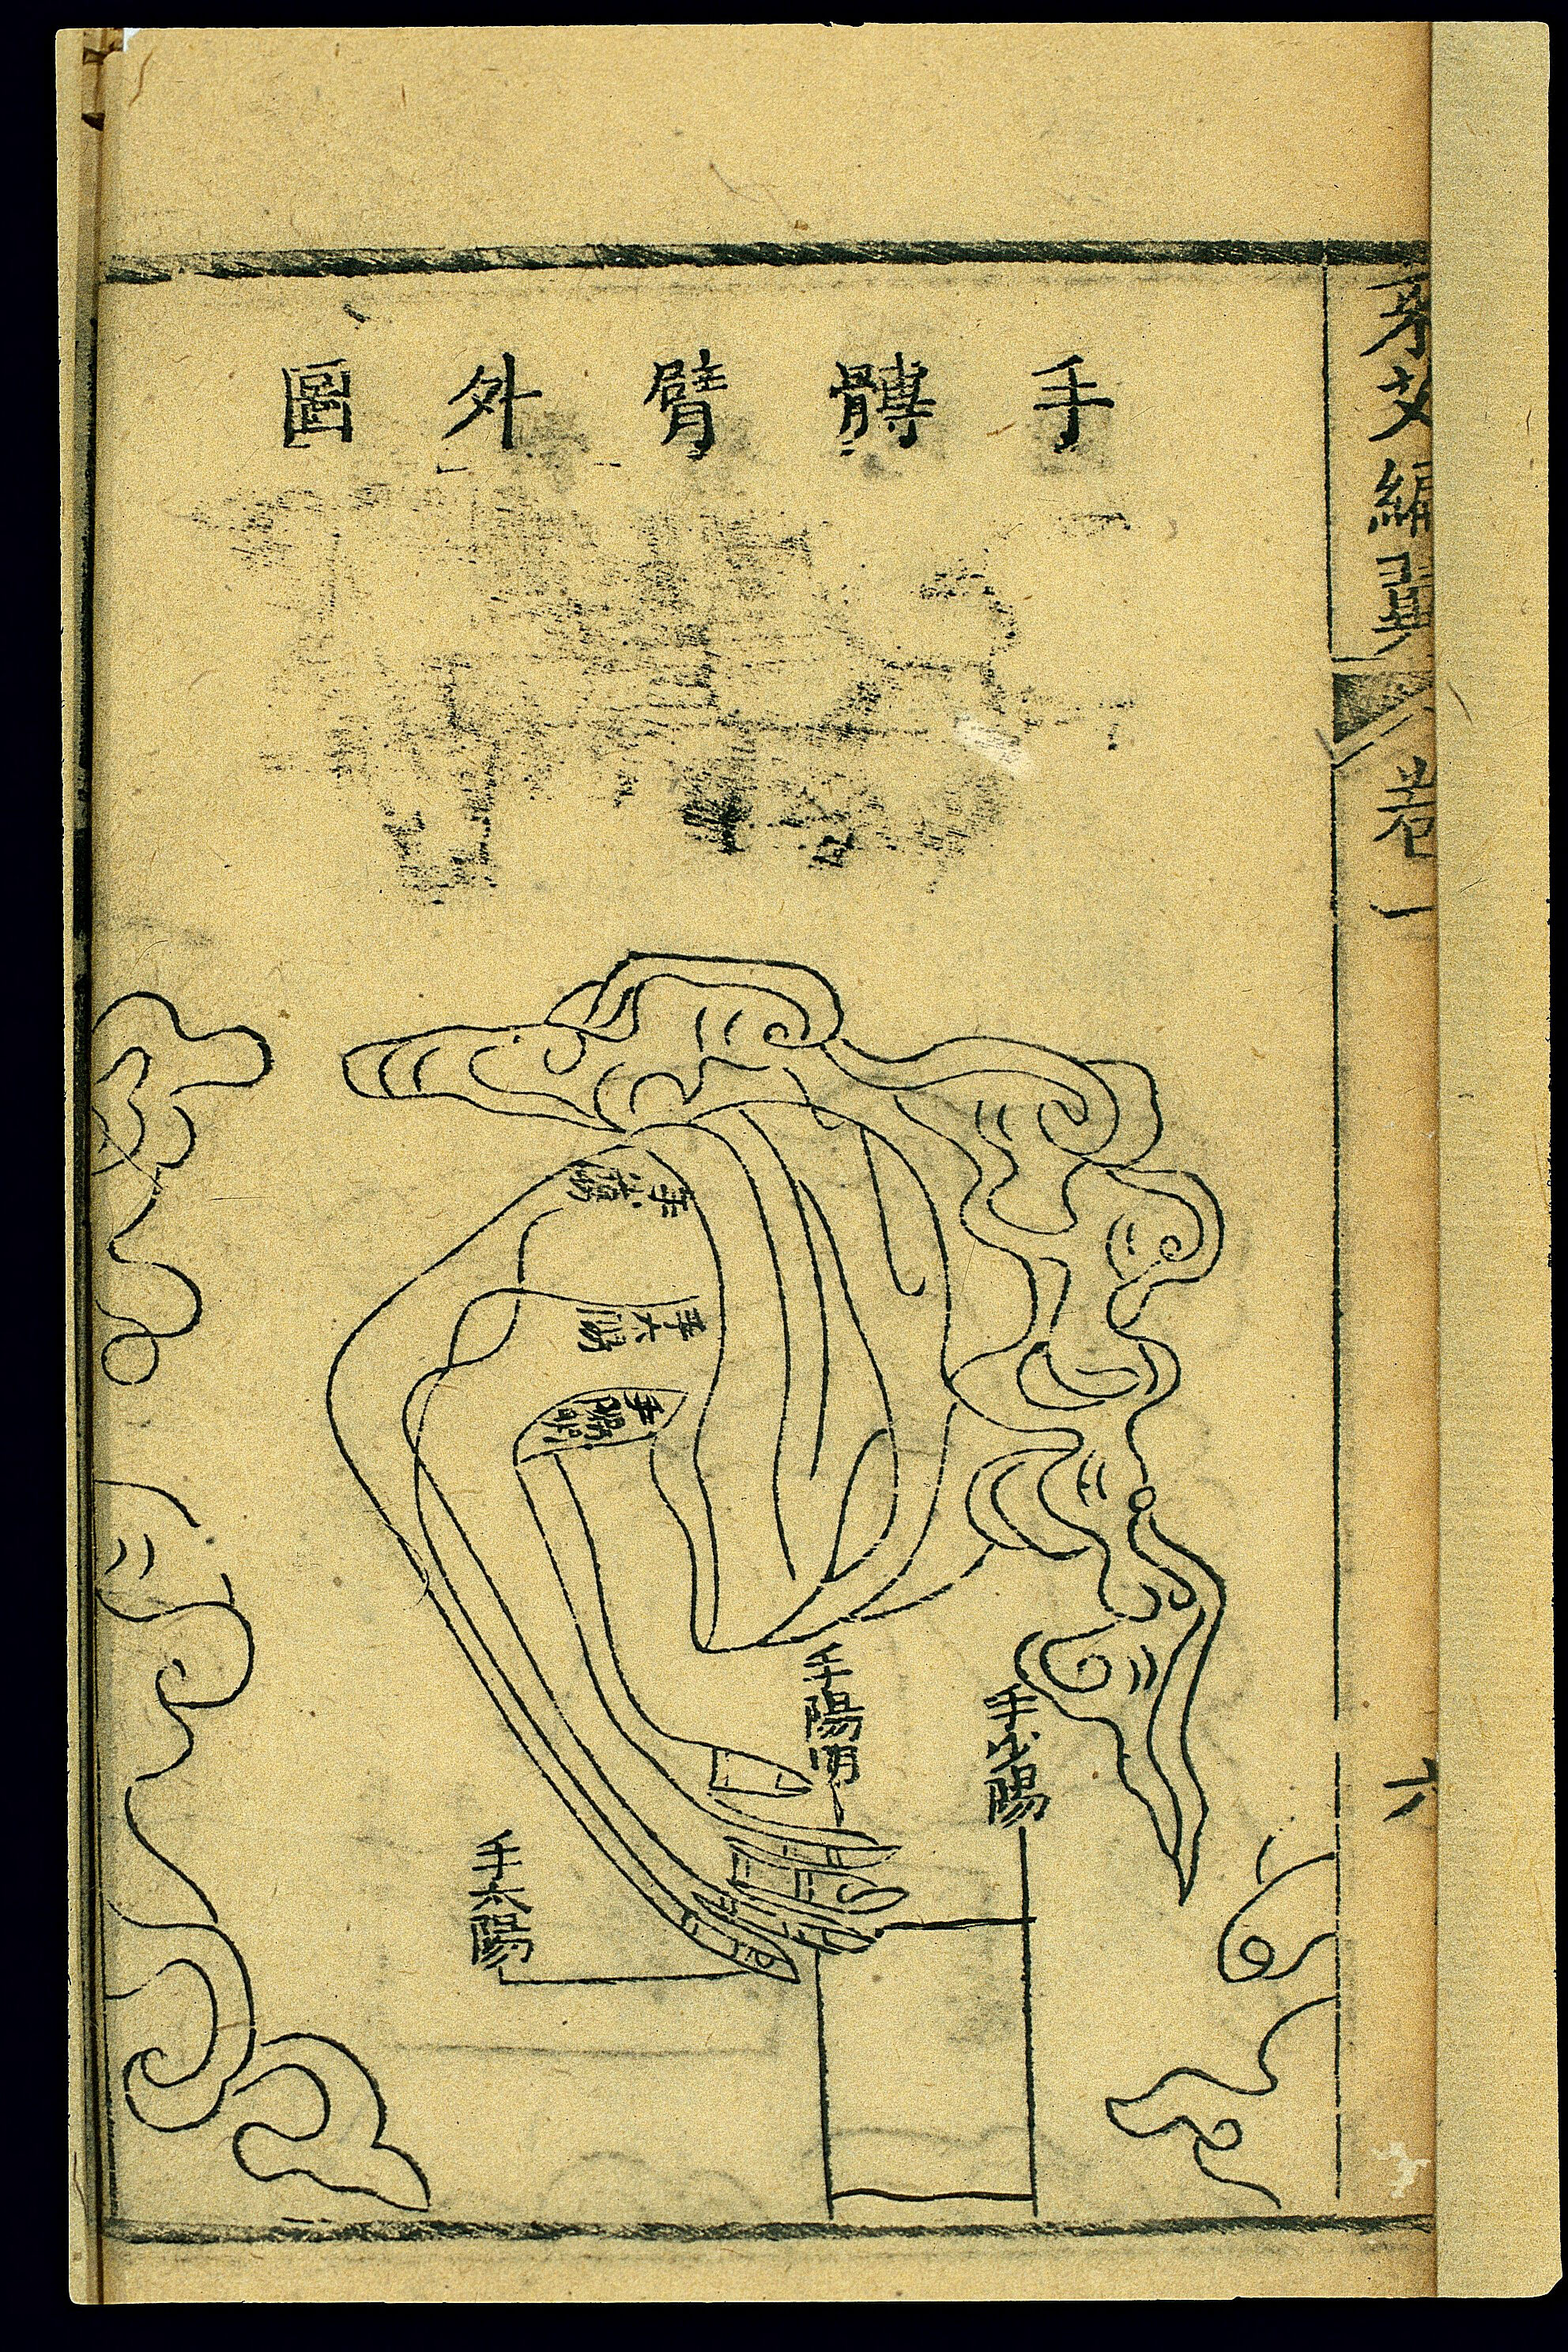 手髆臂外圖
手少陽
手太陽
手陽明
手陽明
手少陽
手太陽
卷一
六